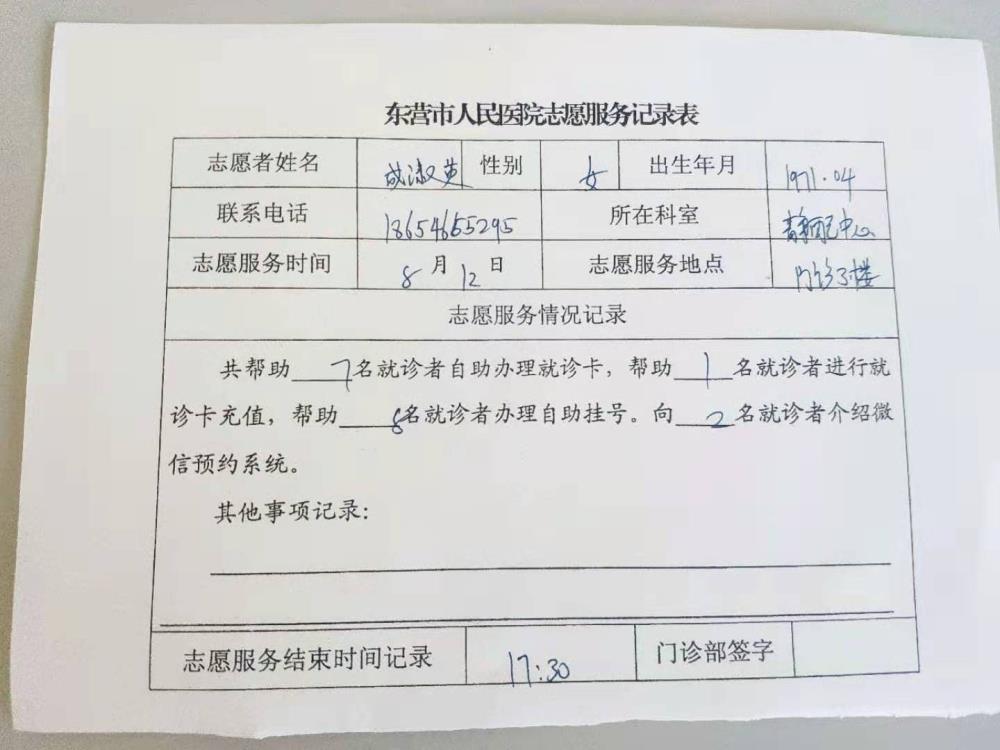 东营市人民医院志愿服务记录表
志愿者姓名 成淑英 性别 女 出生年月 1971.04
联系电话 18654665295 所在科室 静配中心
志愿服务时间 8月12日 志愿服务地点 门诊3楼
志愿服务情况记录
共帮助7名就诊者自助办理就诊卡，帮助1名就诊者进行就
诊卡充值，帮助8名就诊者办理自助挂号。向2名就诊者介绍微
信预约系统。
其他事项记录：
志愿服务结束时间记录 17:30 门诊部签字